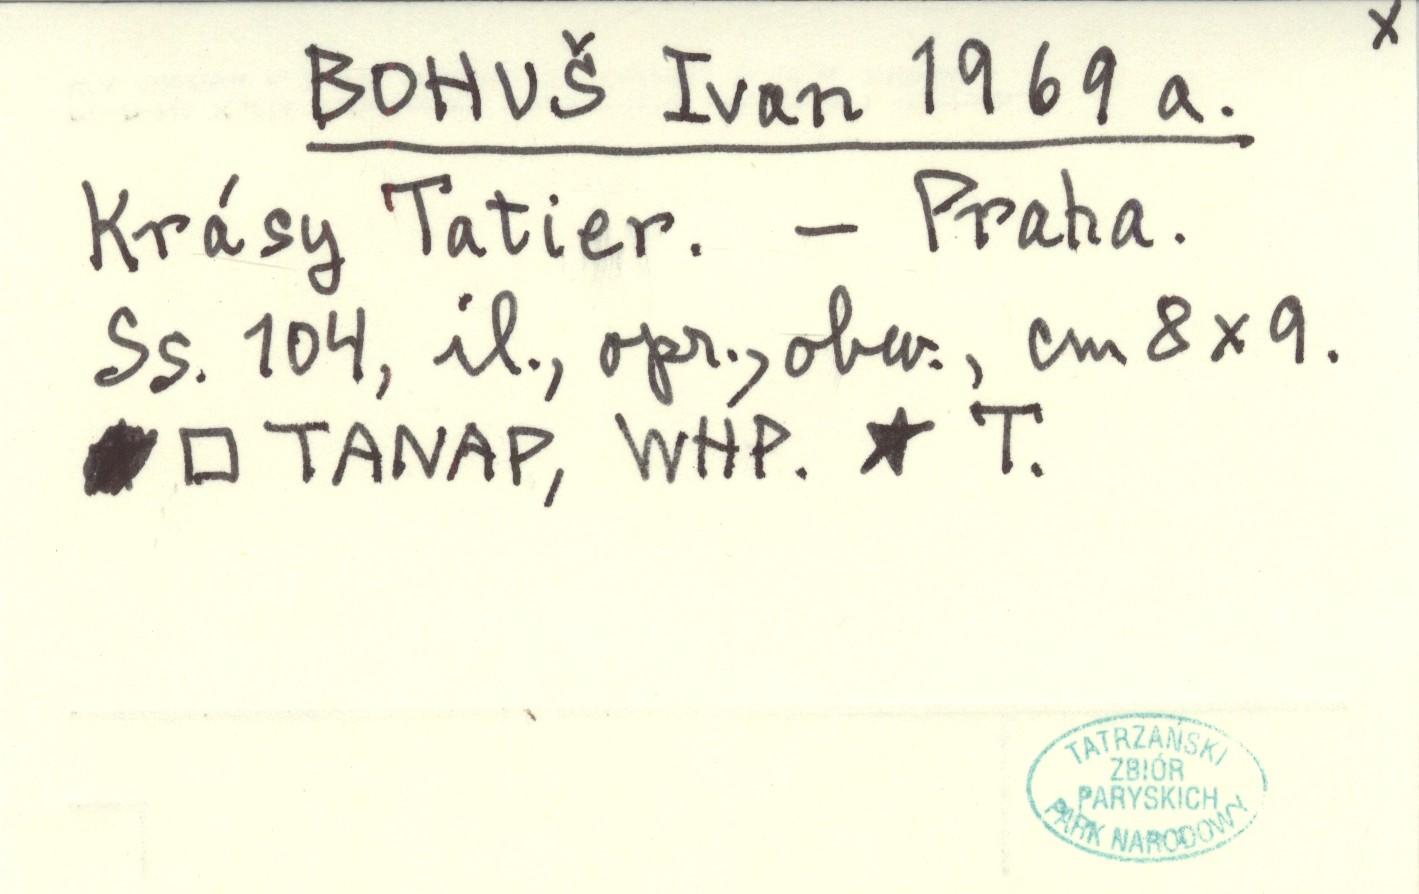 x
BOHUŠ Ivan 1969 a.
Krásy Tatier. – Praha.
Ss. 104, il., opr., obw., cm 8 x 9.
□ TANAP, WHP. ★ T.
TATRZAŃSKI
ZBIÓR
PARYSKICH
PARK NARODOWY